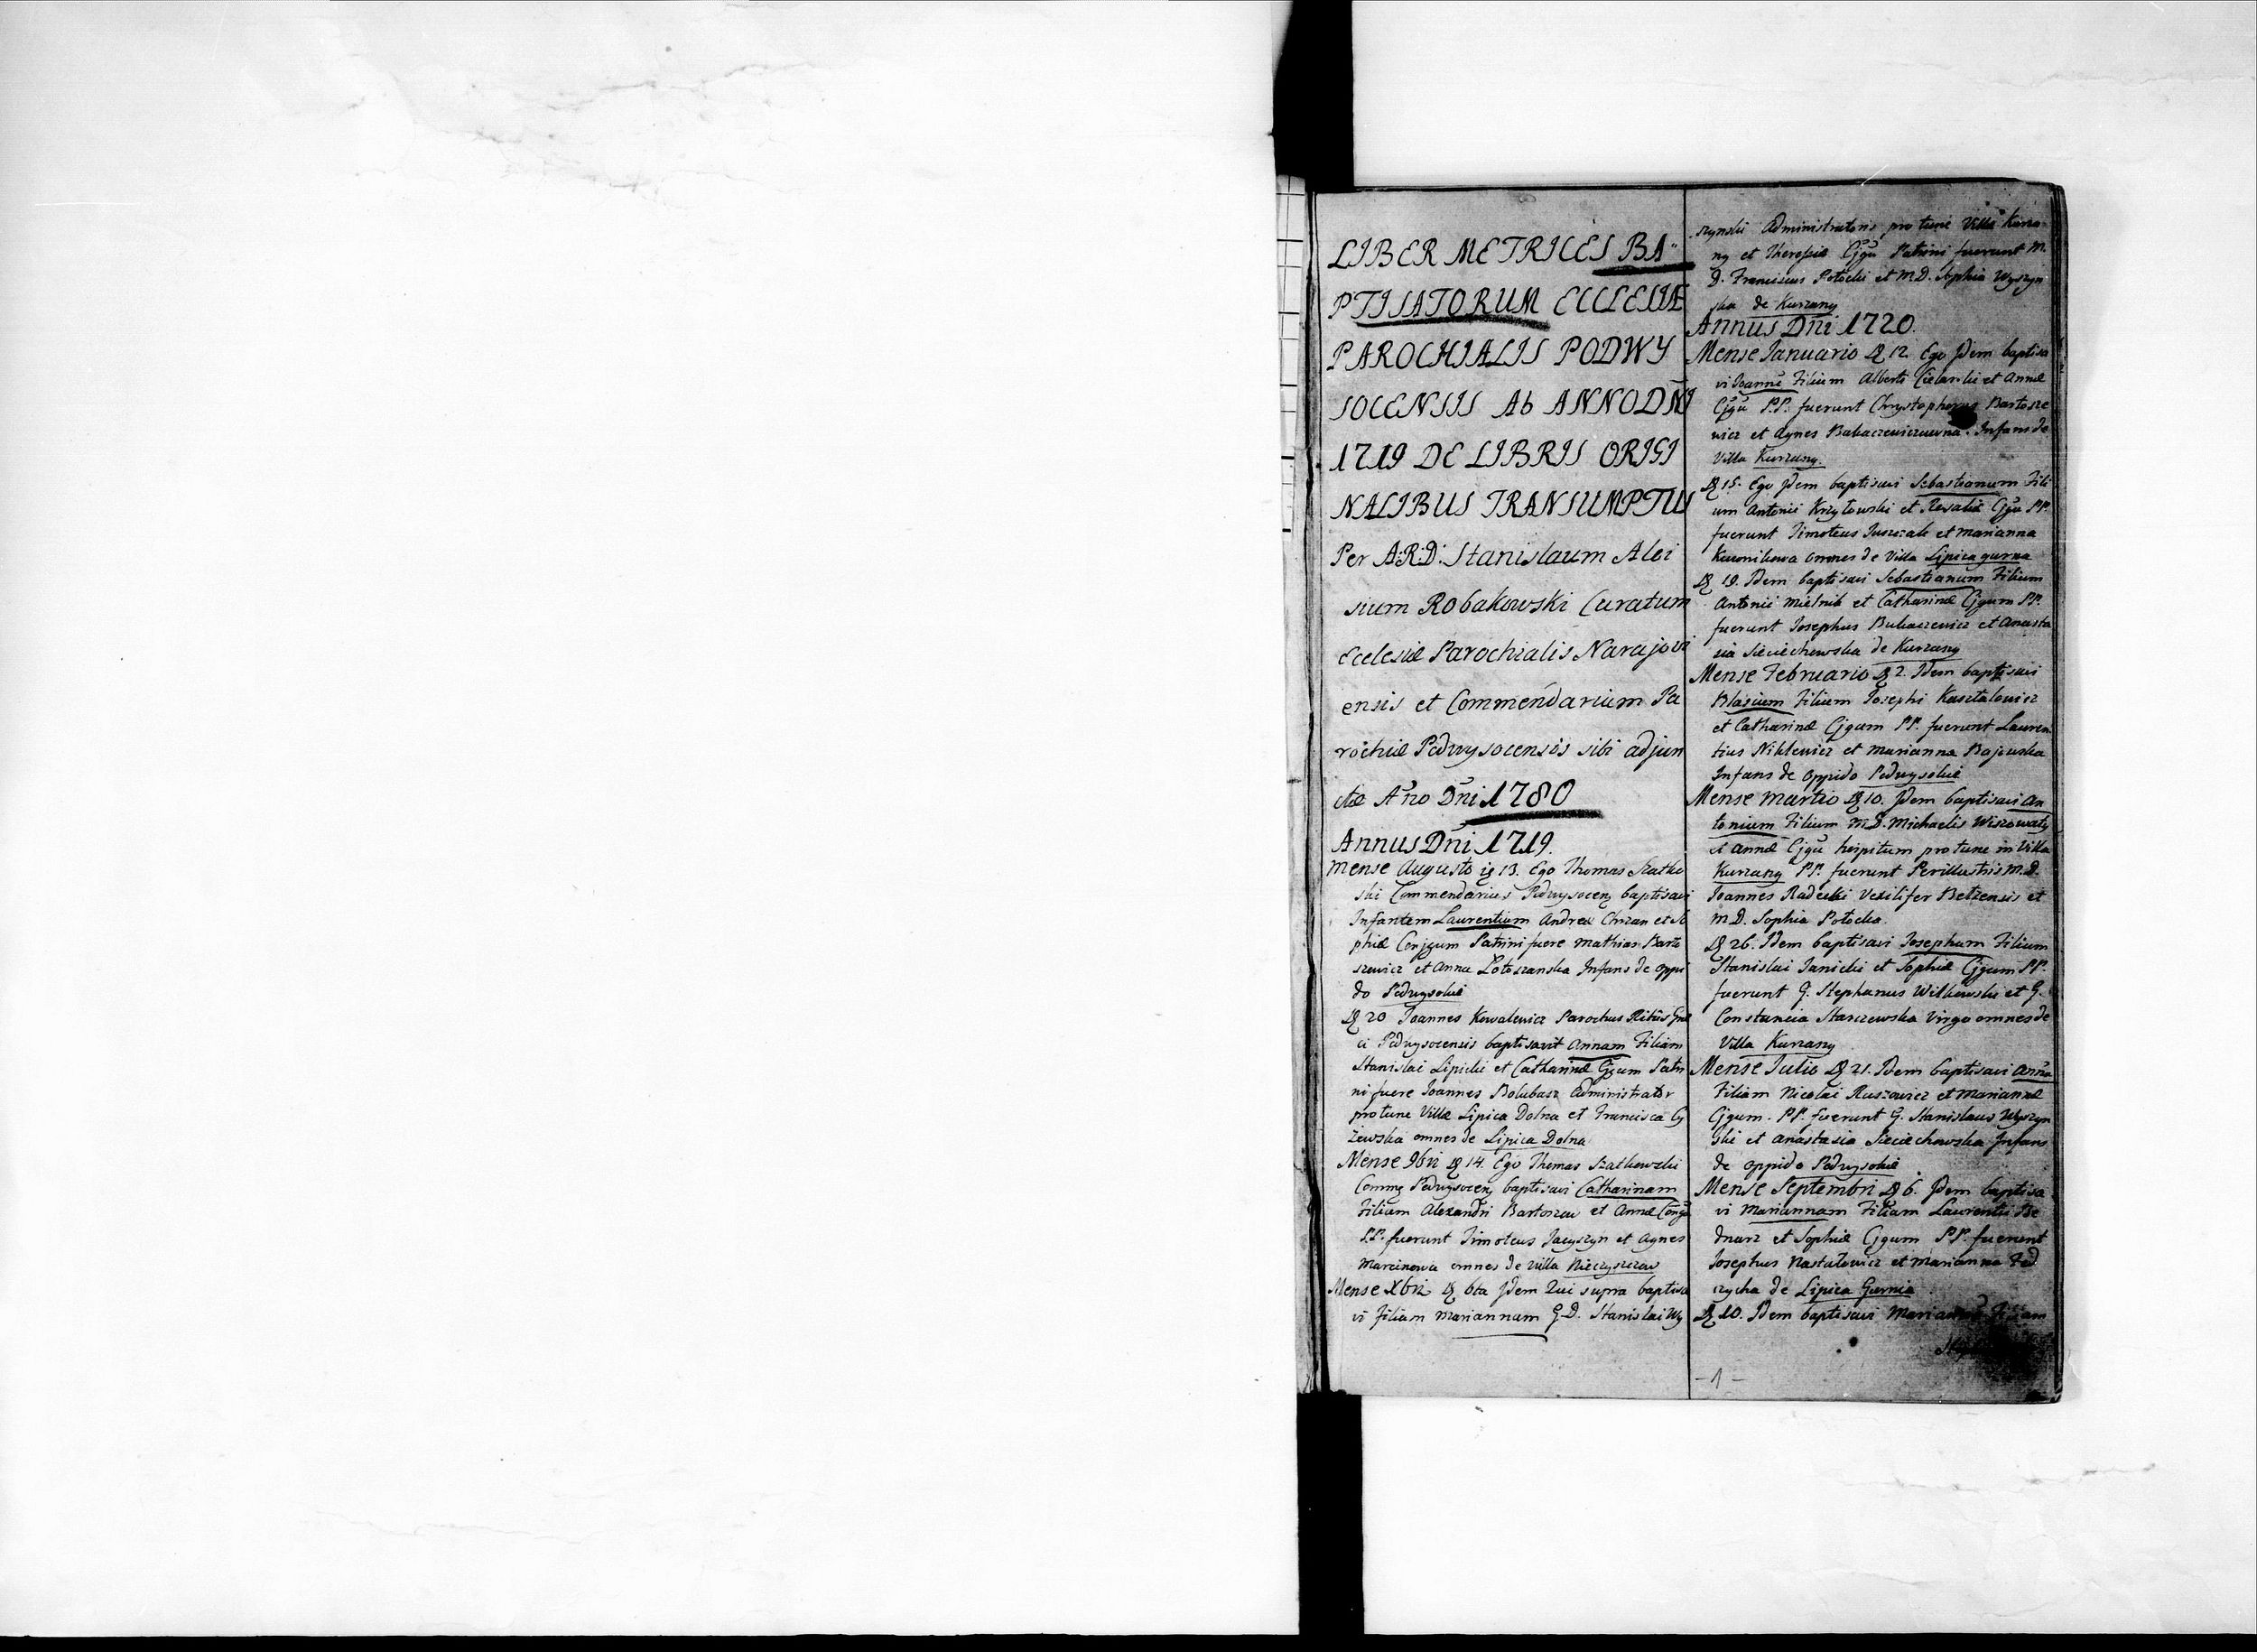 LIBER METRICES BA-
PTISATORUM ECCLESIÆ
PAROCHIALIS PODWY
SOCENSIS Ab ANNO DÑI
1719 DE LIBRIS ORIGI
NALIBUS TRANSUMPTUS
Per A:R:D: Stanislaum Aloi
sium Robakowski Curatum
Ecclesiæ Parochialis Narajovi
ensis et Commendarium Pa
rochiæ Podwysocensis sibi adjun
ctæ Año Dñi 1780
Annus Dñi 1719.
Mense Augusto 13. Ego Thomas Szatko
ski Commendarius Podwysocen baptisavi
Infantem Laurentium Andreæ Chrzan et So
phiæ Conjgum Patrini fuere Mathias Barto
szewicz et Anna Lotoszanska Infans de oppi
do Podwysokie
20 Joannes Kowalewicz Parochus Ritûs Græ
ci Podwysocensis baptisavit Annam Filiam
Stanislai Lipicki et Catharinæ Cjgum Patri
ni fuere Joannes Bolubasz Administrator
pro tunc Villæ Lipica Dolna et Francisca Cy
żewska omnes de Lipica Dolna
Mense 9bri 14. Ego Thomas Szatkowski
Podwysocen baptisavi Catharinam
Filiam Alexandri Bartoszew et Annæ
PP. fuerunt Timoteus Jacyszyn et Agnes
Marcinowa omnes de villa
Mense Xbri 6ta Idem Qui supra baptisa
vi filiam Mariannam G.D. Stanislai Wy
szynski Administratoris pro tunc Villæ Kurza
ny et Theresiæ Cjgū Patrini fuerunt M.
D. Franciscus Potocki et M.D. Sophia Wyszyn
ska de Kurzany
Annus Dñi 1720.
Mense Januario 12. Ego Idem baptisa
vi Joannē Filium Alberti et Annæ
Cjgū PP. fuerunt Chrystophorus Bartosze
wicz et Agnes Infans de
Villa Kurzany.
15. Ego Idem baptisavi Sebastianum Fili
um Antonii Krzyłowski et Rosaliæ Cjgū PP.
fuerunt Timoteus et Marianna
omnes de Villa Lipica gurna
19. Idem baptisavi Sebastianum Filium
Antonii Mielnik et Catharinæ Cjgum PP.
fuerunt Josephus Bukaczewicz et Anasta
sia Sieciechowska de Kurzany
Mense Februario 2. Idem baptisavi
Blasium Filium Josephi Kasztalowicz
et Catharinæ Cjgum PP. fuerunt Lauren
tius Niklewicz et Marianna Bajewska
Infans de oppido Podwysokie
Mense Martio 10. Idem baptisavi An
tonium Filium M.D. Michaelis Wiszowaty
et Annæ Cjgū hospitum pro tunc in Villa
Kurzany PP. fuerunt Perillustris M.D.
Joannes Radecki Vexilifer Betzensis et
M.D. Sophia Potocka.
26. Idem baptisavi Josephum Filium
Stanislai Janicki et Sophiæ Cjgum PP.
fuerunt G. Stephanus Wilkowski et G.
Constancia Starczewska Virgo omnes de
Villa Kurzany
Mense Julio 21. Idem baptisavi Annā
Filiam Nicolai Ruszowicz et Mariannæ
Cjgum. PP. fuerunt G. Stanislaus Wyszyn
ski et Anastasia Sieciechowska Infans
de oppido Podwysokie
Mense Septembri 6. Idem baptisa
vi Mariannam Filiam Laurentii Be
dnarz et Sophiæ Cjgum PP. fuerunt
Josephus Nastalowicz et Marianna Fed
rycha de Lipica Gurnia
10. Idem baptisavi Filiam
-1-